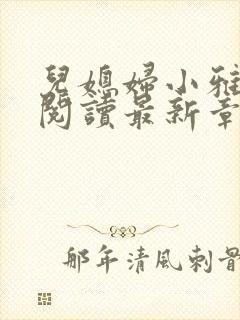 兒媳婦小雅
閱讀最新章
那年清風刺骨